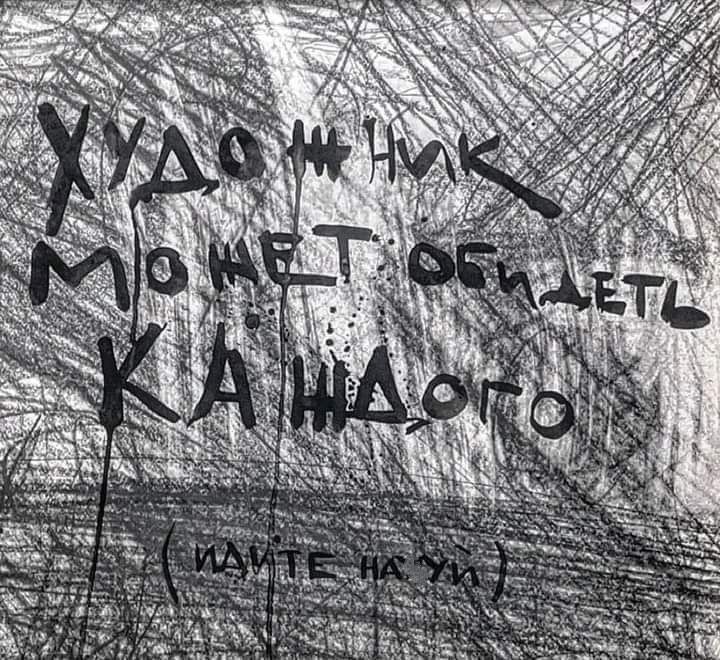 ХУДОЖНИК
МОЖЕТ ОБИДЕТЬ
КАЖДОГО
(ИДИТЕ НА УЙ)